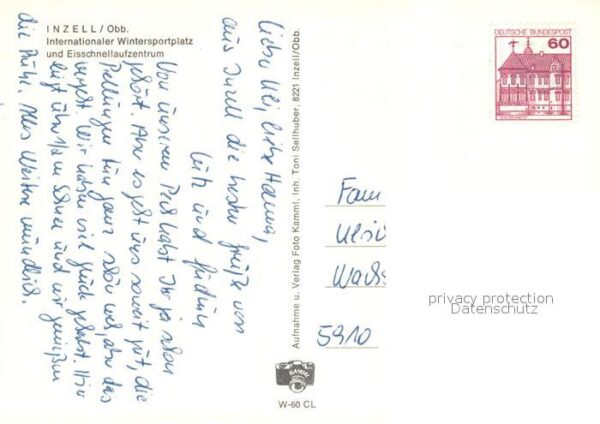 INZELL/Obb.
Internationaler Wintersportplatz
und Eisschnellaufzentrum
Liebe Uli, liebe Hanna,
aus Inzell die besten Grüße von
Lutz und
Von unserem Pech habt Ihr ja schon
gehört. Aber es geht uns soweit gut, die
Prellungen tun ganz schön weh, aber das
vergeht. Wir haben viel Glück gehabt. Hier
liegt über 1 m Schnee und wir genießen
die Ruhe. Alles Weitere mündlich.
Aufnahme u. Verlag Foto Kamml, Inh. Toni Sellhuber, 8221 Inzell/Obb.
DEUTSCHE BUNDESPOST
60
Fam
Ulri
Wachs
5910
privacy protection
Datenschutz
KAMML
W-60 CL